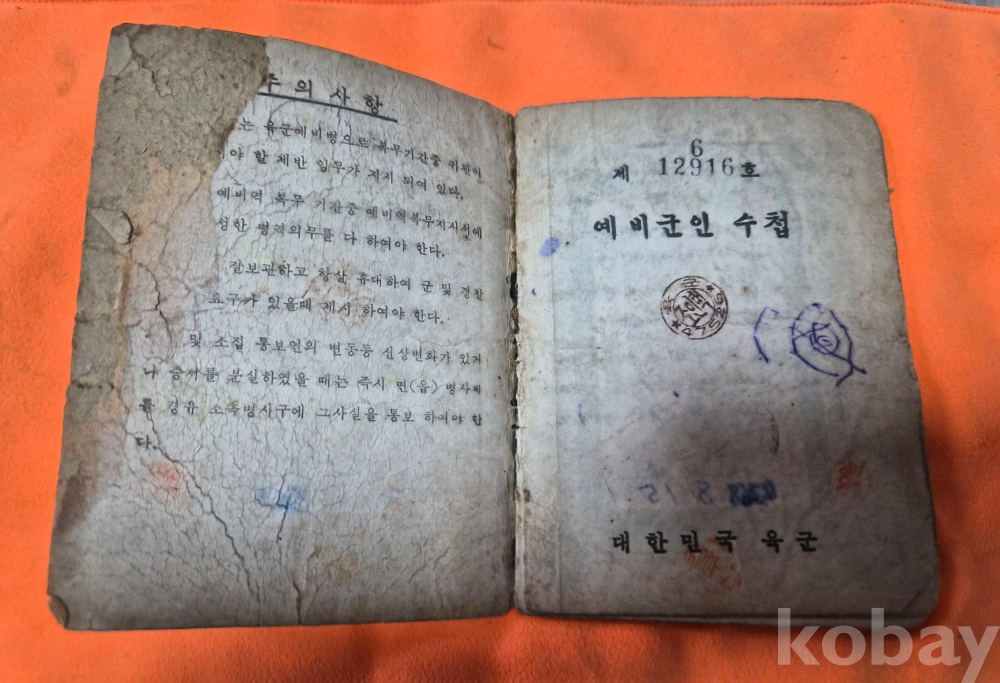 주의사항
는 육군예비병으로 복무기간중 귀관이
야 할 제반 임무가 지시 되여 있다.
예비역 복무 기간중 예비역복무지시선에
성한 병역의무를 다 하여야 한다.
잘보관하고 항상 휴대하여 군 및 경찰
요구가 있을때 제시 하여야 한다.
및 소집 통보인의 변동등 신상변화가 있거
나 증서를 분실하였을 때는 즉시 면(읍) 병사계
를 경유 소속병사구에 그사실을 통보 하여야 한
다.
6
제 12916호
예비군인 수첩
대한민국 육군
kobay